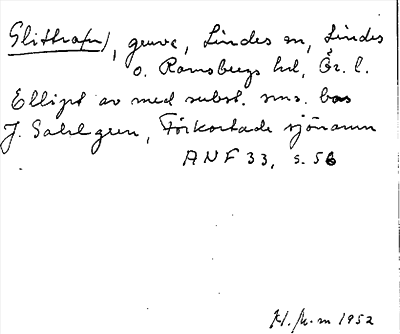 Glitter(n), gruva, Lindes sn, Lindes
o. Ramsbergs hd, Ör. l.
Ellipt av med subst. sms. bas
J. Sahlgren, Förkortade sjönamn
ANF 33, s. 56
1952